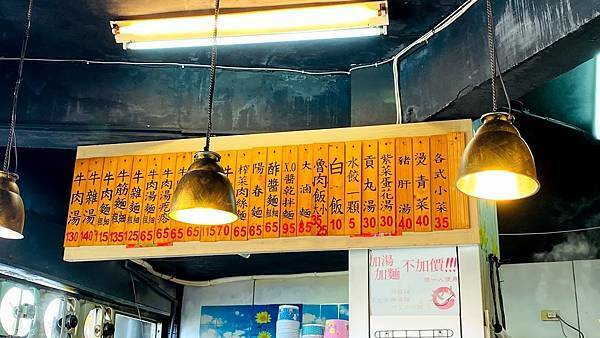 牛肉湯 130
牛雜湯 140
牛肉麵 粗細 115
牛筋麵 粗細 135
牛雜麵 粗細 125
牛肉湯麵 粗細 65
牛肉湯疙瘩 65
榨菜肉絲麵 65
陽春麵 粗細 65
酢醬麵 粗細 65
XO醬乾拌麵 95
大滷麵 85
魯肉飯 大小
白飯 10
水餃一顆 5
貢丸湯 30
紫菜蛋花湯 30
豬肝湯 40
燙青菜 40
各式小菜 35
加湯
加麵 不加價!!!